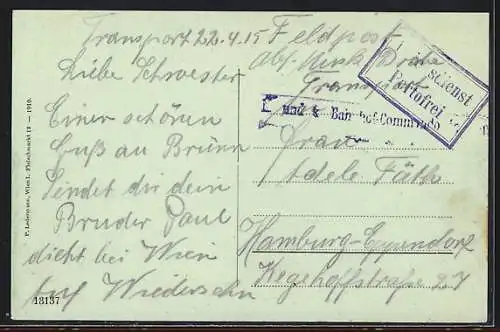 Transport 22.4.15
Liebe Schwester
Einen schönen
Gruß aus Brünn
Sendet dir dein
Bruder Paul
dicht bei Wien
Auf Wiedersehn
Feldpost
Transport
dienst
Portofrei
K. und k. Bahnhof-Commando
Frau
Adele Fäth
Hamburg-Eppendorf
Kegelhofstraße 27
P. Ledermann, Wien I., Fleischmarkt 12 — 1910.
13137